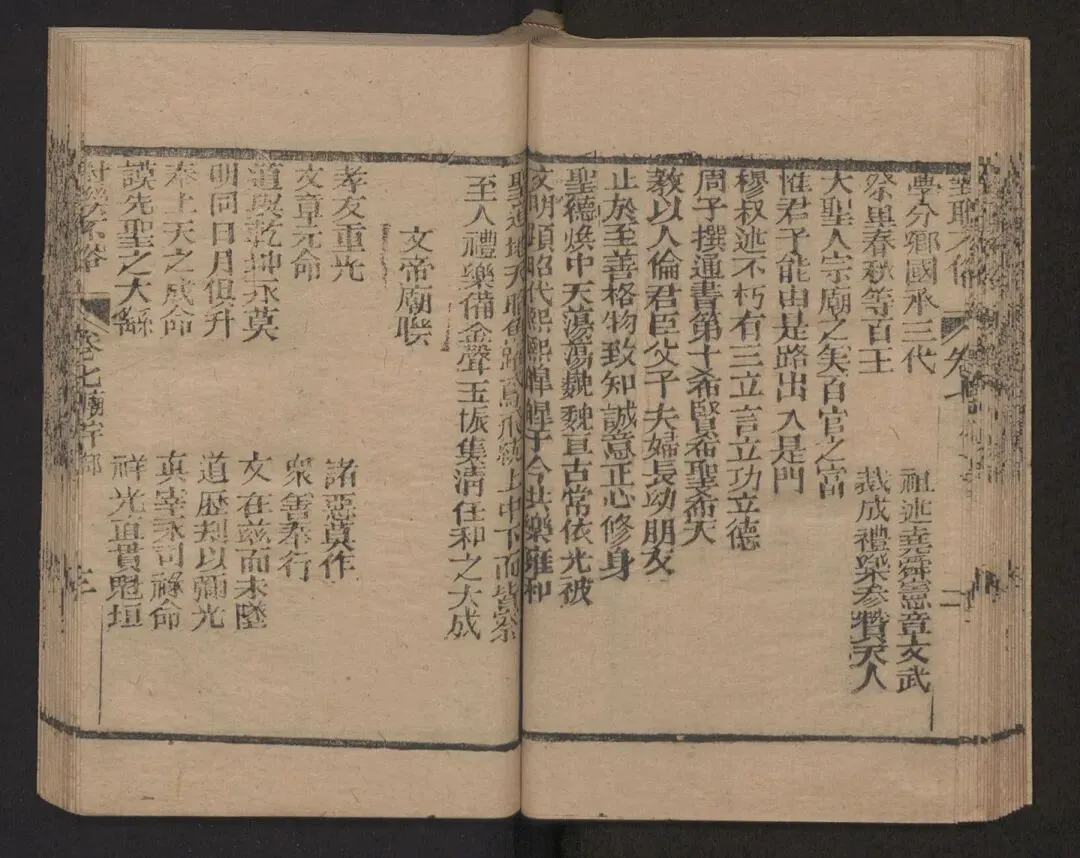 對聯不俗 卷七 二
學分鄉國承三代 祖述堯舜憲章文武
祭里春秋等百王 裁成禮樂參贊天人
大聖人宗廟之美百官之富
惟君子能由是路出入是門
穆叔述不朽有三立言立功立德
周子撰通書第十希賢希聖希天
教以人倫君臣父子夫婦長幼朋友
止於至善格物致知誠意正心修身
聖德煥中天蕩蕩巍巍亘古常依光被
文明頌昭代熙熙皞皞于今共樂雍和
聖道地天昭魚躍鳶飛統上中下而皆察
至人禮樂備金聲玉振集清任和之大成
文帝廟聯
孝友重光 諸惡莫作
文章元命 衆善奉行
道與乾坤永莫 文在兹而未墜
明同日月但升 道歷刼以彌光
奉上天之成命 真宰永司祿命
謨先聖之大繇 祥光直貫魁垣
對聯不俗 卷七廟宇部 三